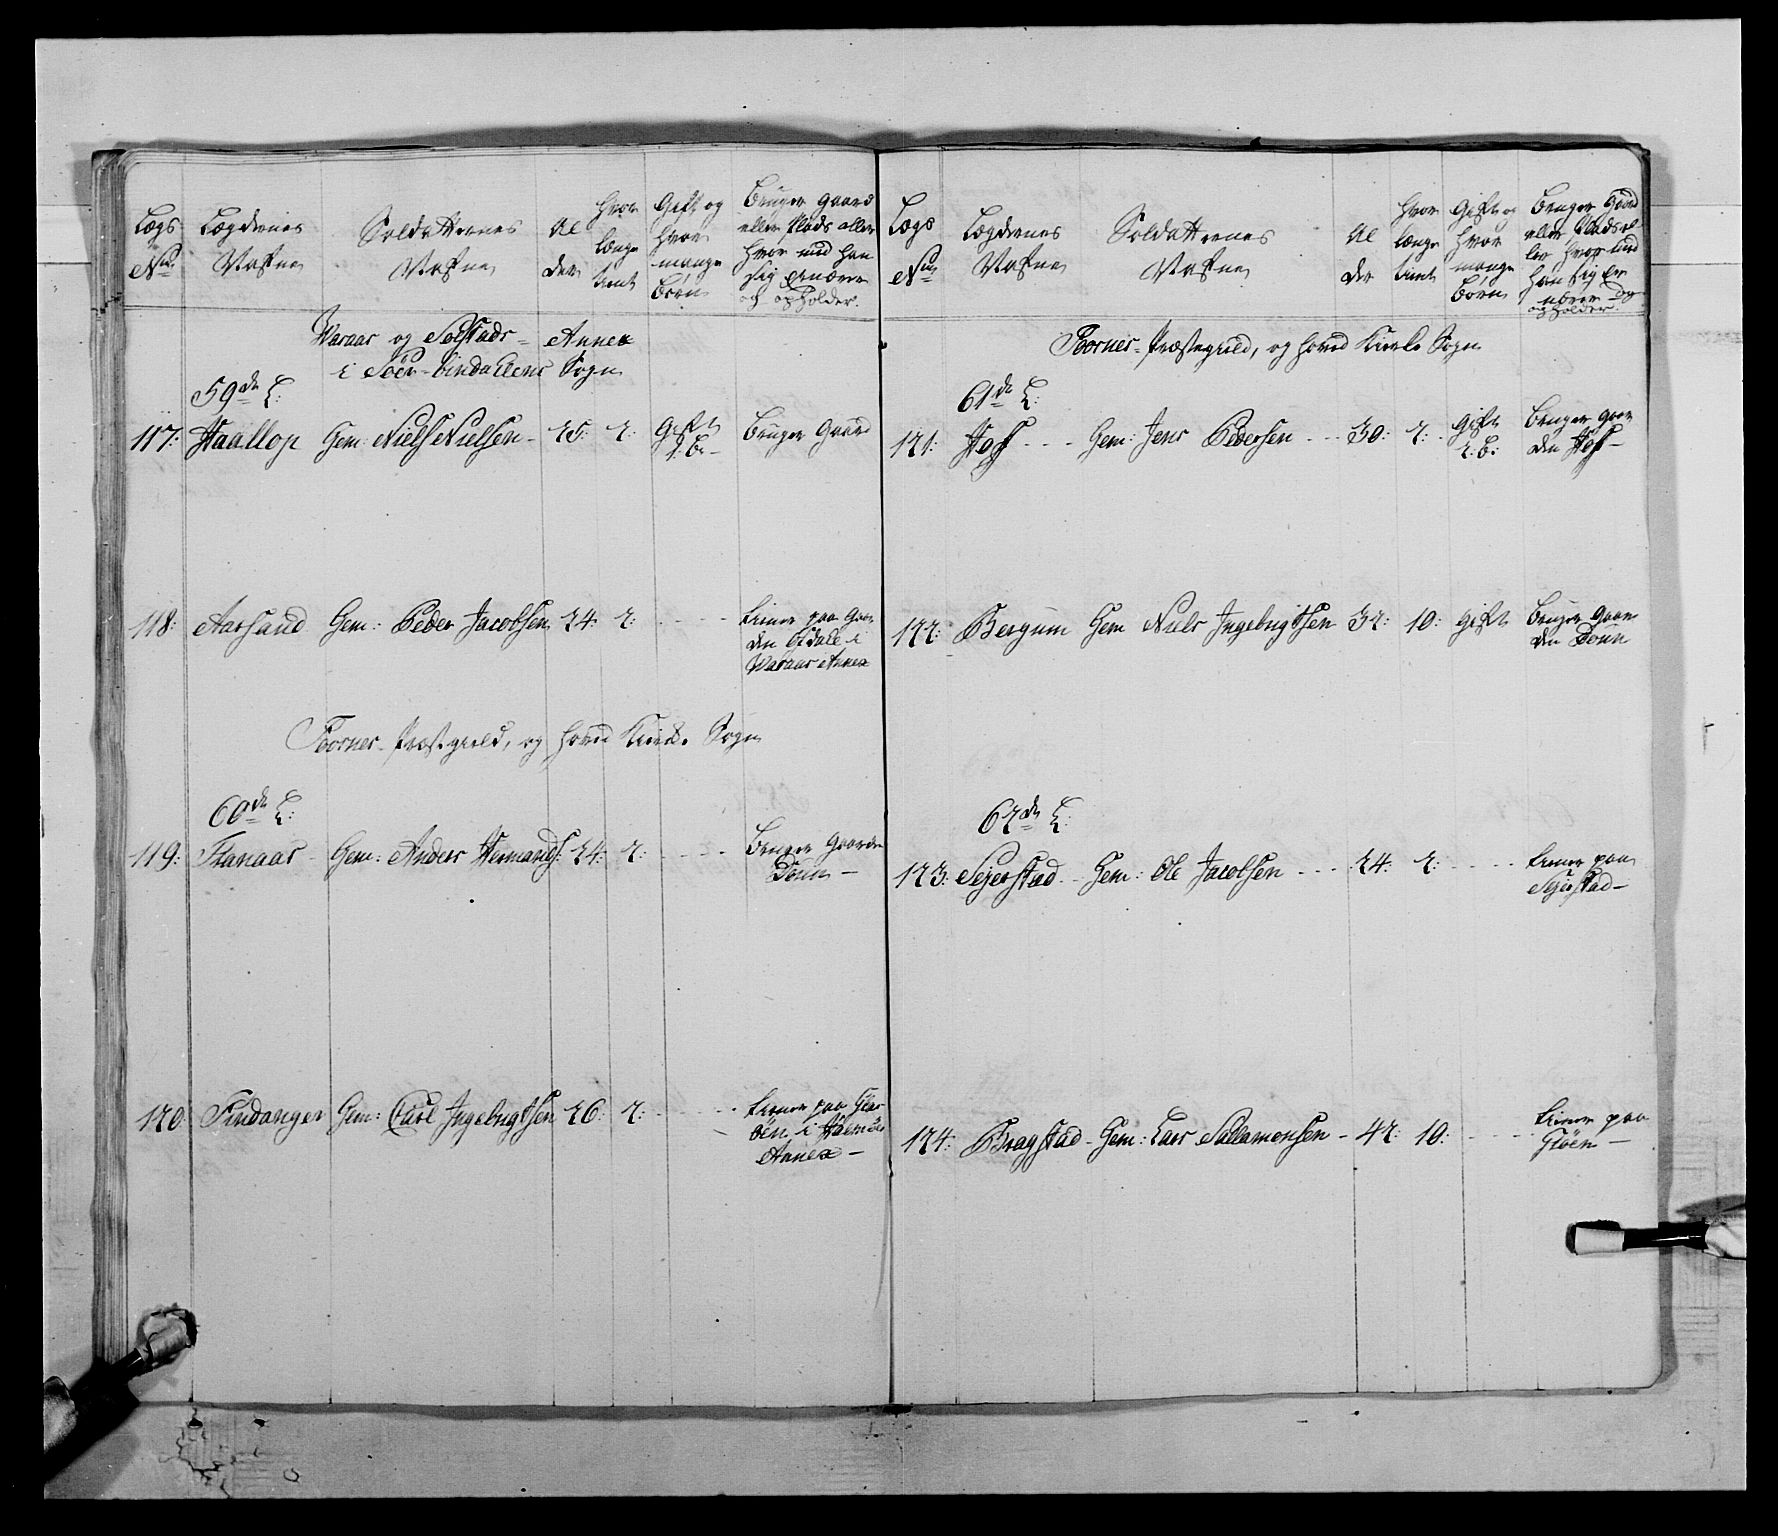 Lægs No
Lægdernes Nafne
Soldatternes Nafne
Al der
hvor længe tient
Gift og hvor mange Børn
Bruger Gaard eller Plads eller hvor med han sig ernærer og opholder.
Waraas og Solstads Annex
i Söer-bindallens Sogn
59de L:
117: Haallop Gem: Niels Nielsen 25: 2: Gift 1. B. Bruger Gaard
118: Aarsand Gem: Peder Jacobsen 24: 2: tiener paa Gaar
den i
Waraas Annex
Foornes Præstegield, og hoved Kircke Sogn
60de L:
119: Flanaas Gem: Anders Hermands: 24: 2: Bruger Gaarden
120: Findanger Gem: Carl Ingebrigtsen 26: 2: tiener paa
i
Annex
Lægs No
Lægdernes Nafne
Soldatternes Nafne
Al der
hvor længe tient
Gift og hvor mange Børn
Bruger Gaard eller Plads el ler hvor med han sig Er nærer og opholder.
Foornes Præstegield, og hoved Kircke Sogn
61de L:
121: Hoff Gem: Jens Pedersen 30: 2: gift 2: B: Bruger Gaar
den Hoff
122: Bergum Gem Niels Ingebrigtsen 32: 10: gift Bruger Gaar
den
62de L:
123: Sejerstad Gem: Ole Jacobsen 24: 2: tiener paa
Sejerstad
124: Bragstad Gem: Lars Sallamonsen 42: 10: tiener paa
Gløen